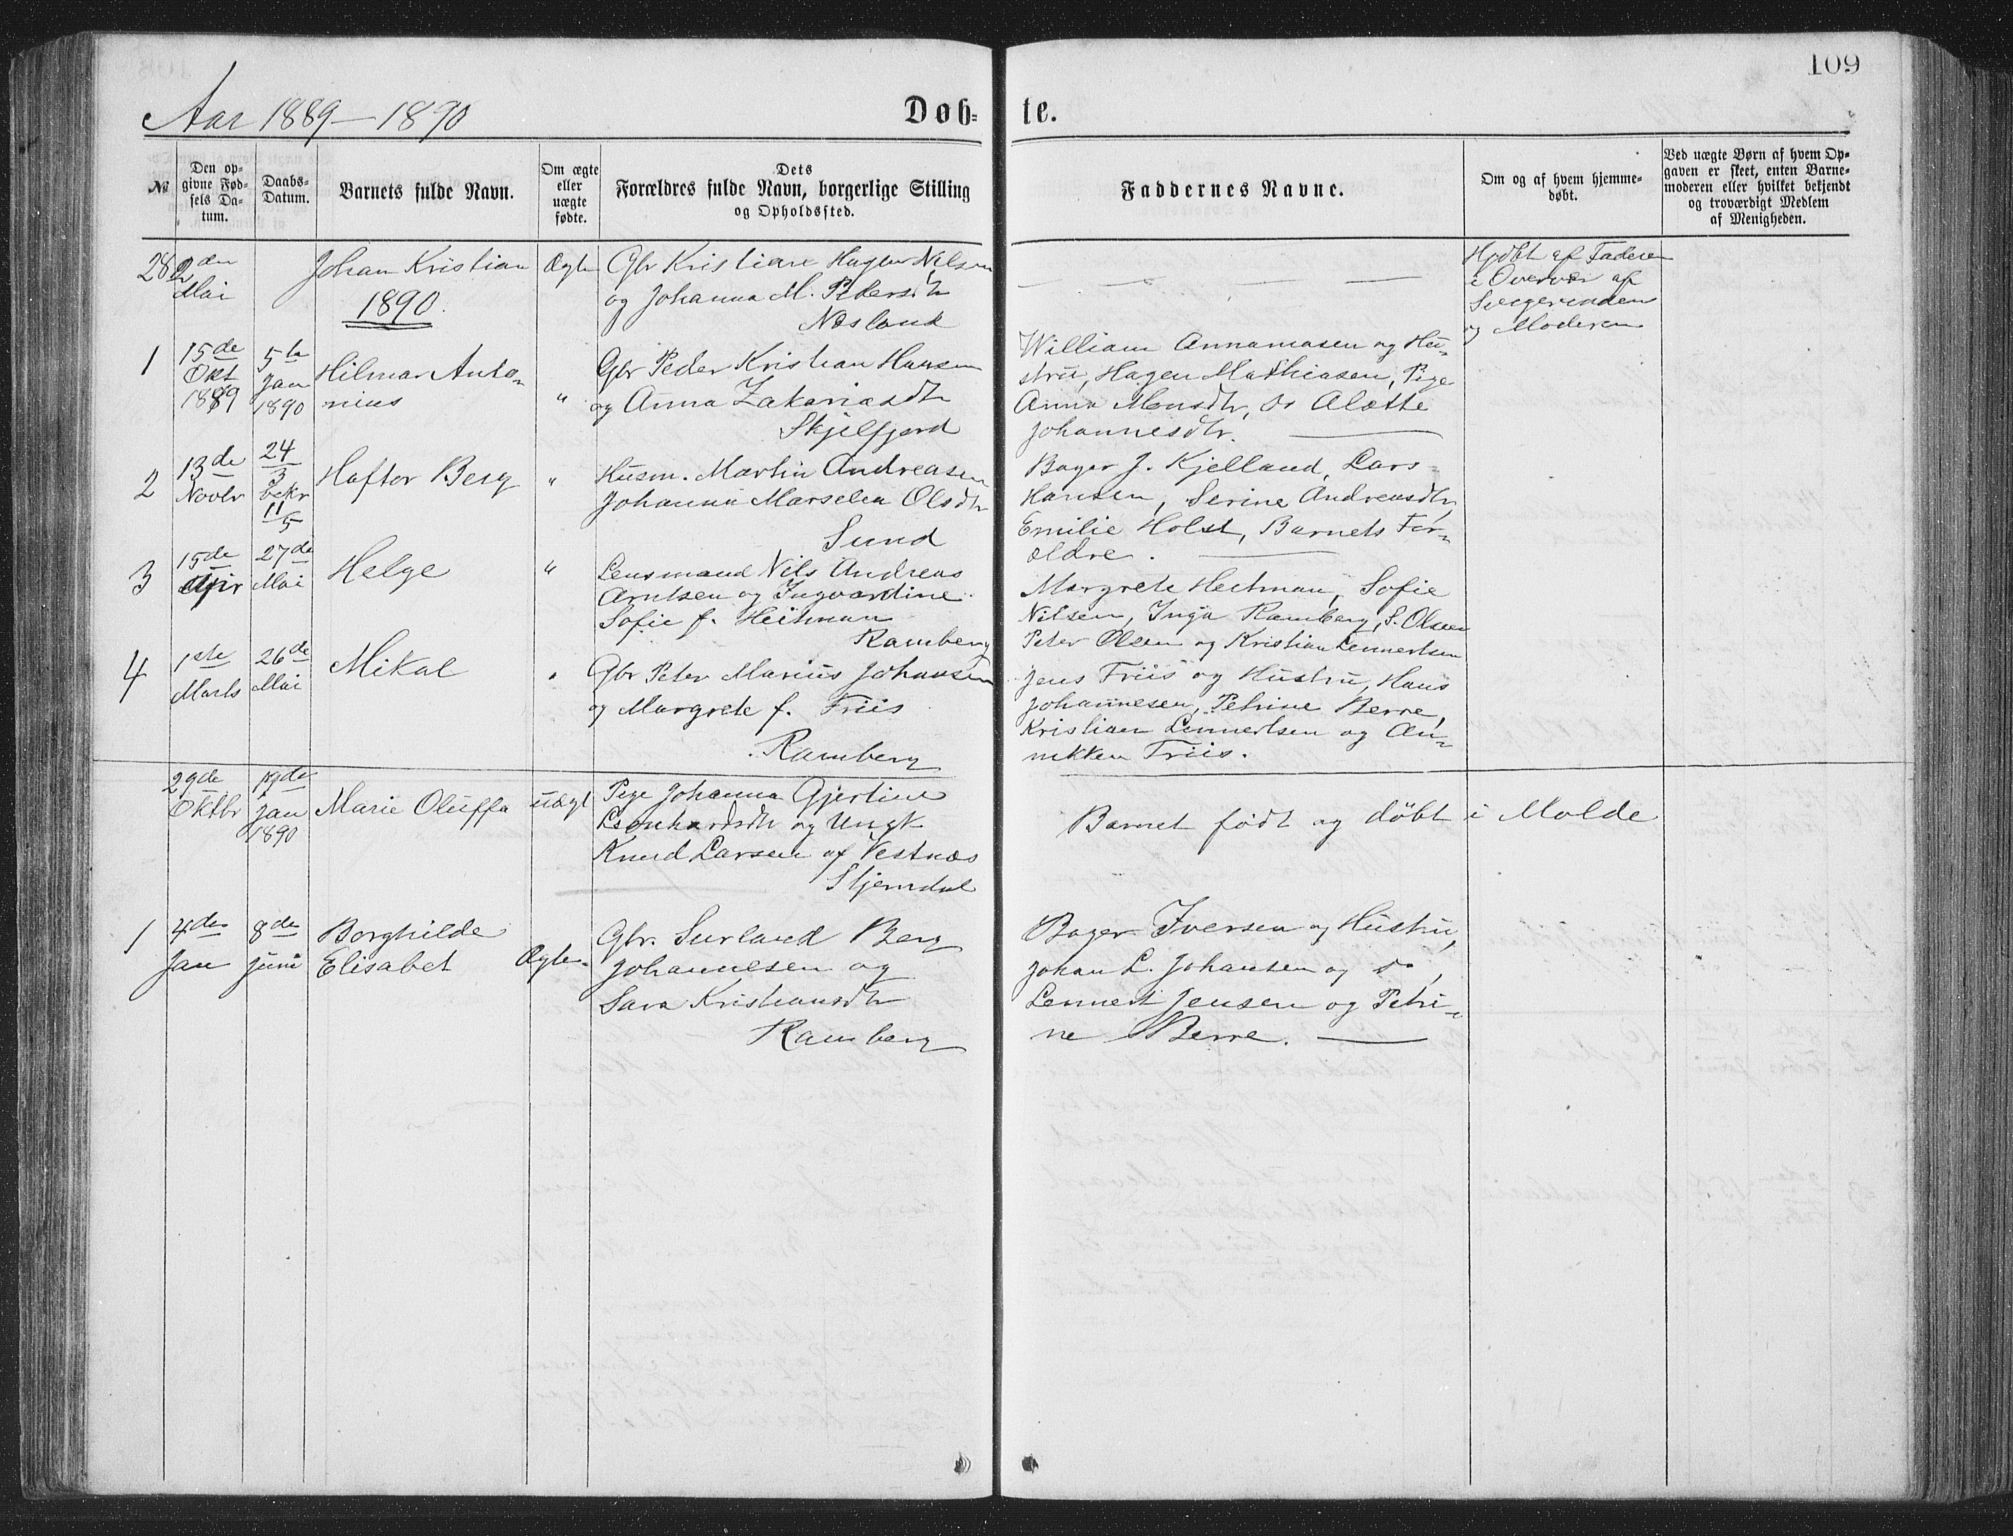 109
Aar 1889–1890
Døb-
te.
№
Den op-
givne Fød-
sels Da-
tum.
Daabs-
Datum.
Barnets fulde Navn.
Om ægte
eller
uægte
fødte.
Dets
Forældres fulde Navn, borgerlige Stilling
og Opholdssted.
Faddernes Navne.
Om og af hvem hjemme-
døbt.
Ved uægte Børn af hvem Op-
gaven er skeet, enten Barne-
moderen eller hvilket bekjendt
og troværdigt Medlem
af Menigheden.
28
2den
Mai
Johan Kristian
Ægte
Gbr Kristian Hagen Nilsen
og Johanna M. Pedersdtr
Næsland
Hjdbt af Faderen
i Overvær af
og Moderen
1890.
1
15de
Okt
1889
5te
Jan
1890
Hilmar Anto-
nius
"
Gbr Peder Kristian Hansen
og Anna Zakariasdtr
Skjelfjord
William Annaniasen og Hu-
stru, Hagen Mathiasen, Pige
Anna Monsdtr, do Alette
Johannesdtr.
2
13de
Novbr
24
3
bekr
11
5
Haftor Berg
"
Husm. Martin Andreasen
Johanna Marselea Olsdtr
Sund
Bager J. Kjelland, Lars
Hansen, Serine Andreasdtr,
Emilie Holst, Barnets For-
ældre.
3
15de
Apr
27de
Mai
Helge
"
Lensmand Nils Andreas
Arntsen og Ingvardine
Sofie f. Heitman
Ramberg
Margrete Heitman, Sofie
Nilsen, Inga Ramberg, S. Olsen
Peter Olsen og Kristian Lennertsen
4
1ste
Marts
26de
Mai
Mikal
"
Gbr Peter Marius Johansen
og Margrete f. Friis
Ramberg
Jens Friis og Hustru, Hans
Johannesen, Petrine Berre,
Kristian Lennertsen og An-
nikken Friis.
29de
Oktbr
19de
Jan
1890
Marie Oluffa
uægt
Pige Johanna Gjertine
Leonhardsdtr og Ungk
Knud Larsen af Vestnæs
Stjerndal
Barnet født og døbt i Molde
1
4de
Jan
8de
Juni
Borghilde
Elisabet
Ægte
Gbr. Surland Berg
Johannesen og
Sara Kristiansdtr
Ramberg
Bager Iversen og Hustru,
Johan L. Johansen og do,
Lennert Jensen og Petri-
ne Berre.